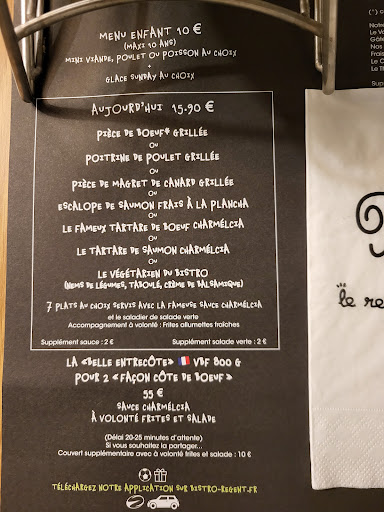 MENU ENFANT 10 €
(MAXI 10 ANS)
MINI VIANDE, POULET OU POISSON AU CHOIX
+
GLACE SUNDAY AU CHOIX
AUJOURD'HUI 15.90 €
PIÈCE DE BOEUF* GRILLÉE
OU
POITRINE DE POULET GRILLÉE
OU
PIÈCE DE MAGRET DE CANARD GRILLÉE
OU
ESCALOPE DE SAUMON FRAIS À LA PLANCHA
OU
LE FAMEUX TARTARE DE BOEUF CHARMÉLCIA
OU
LE TARTARE DE SAUMON CHARMÉLCIA
OU
LE VÉGÉTARIEN DU BISTRO
(NEMS DE LÉGUMES, TABOULÉ, CRÈME DE BALSAMIQUE)
7 PLATS AU CHOIX SERVIS AVEC LA FAMEUSE SAUCE CHARMÉLCIA
et le saladier de salade verte
Accompagnement à volonté : Frites allumettes fraîches
Supplément sauce : 2 € Supplément salade verte : 2 €
LA «BELLE ENTRECÔTE» VBF 800 G
POUR 2 «FAÇON CÔTE DE BOEUF»
55 €
SAUCE CHARMÉLCIA
À VOLONTÉ FRITES ET SALADE
(Délai 20-25 minutes d'attente)
Si vous souhaitez la partager...
Couvert supplémentaire avec à volonté frites et salade : 10 €
TÉLÉCHARGEZ NOTRE APPLICATION SUR BISTRO-REGENT.FR
(*) o
Notre
Le Va
Gâte
Nos
Frais
Le C
Le Th
Supp
le re